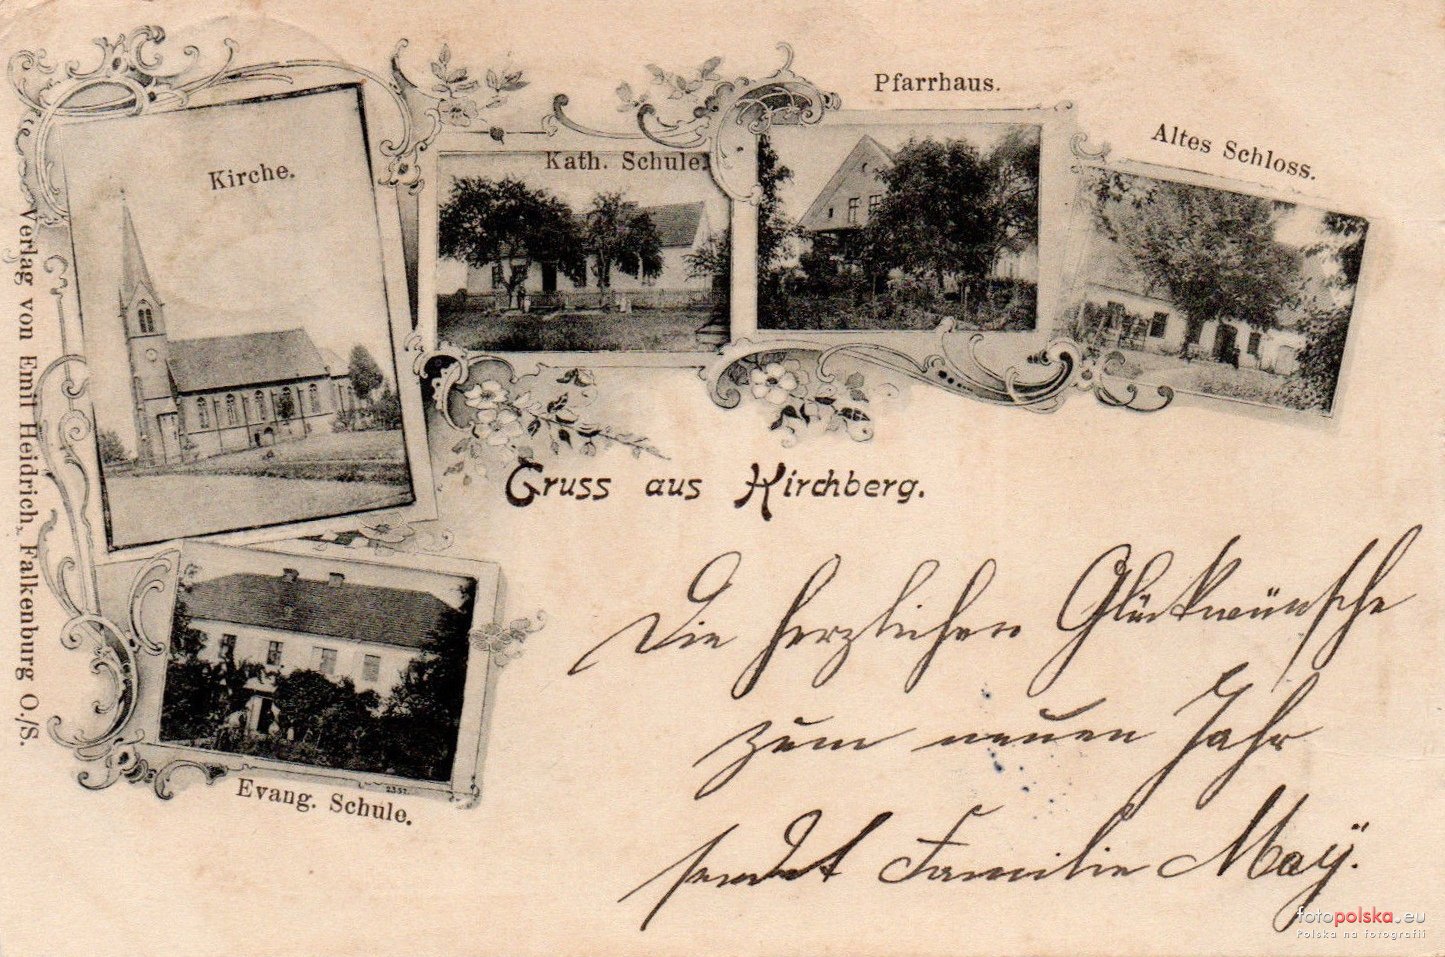 Kirche.
Kath. Schule.
Pfarrhaus.
Altes Schloss.
Verlag von Emil Heidrich, Falkenburg O./S.
Gruss aus Kirchberg.
Die herzlichen Glückwünsche
zum neuen Jahr
sendet Familie Maÿ.
2351.
Evang. Schule.
fotopolska.eu
Polska na fotografii